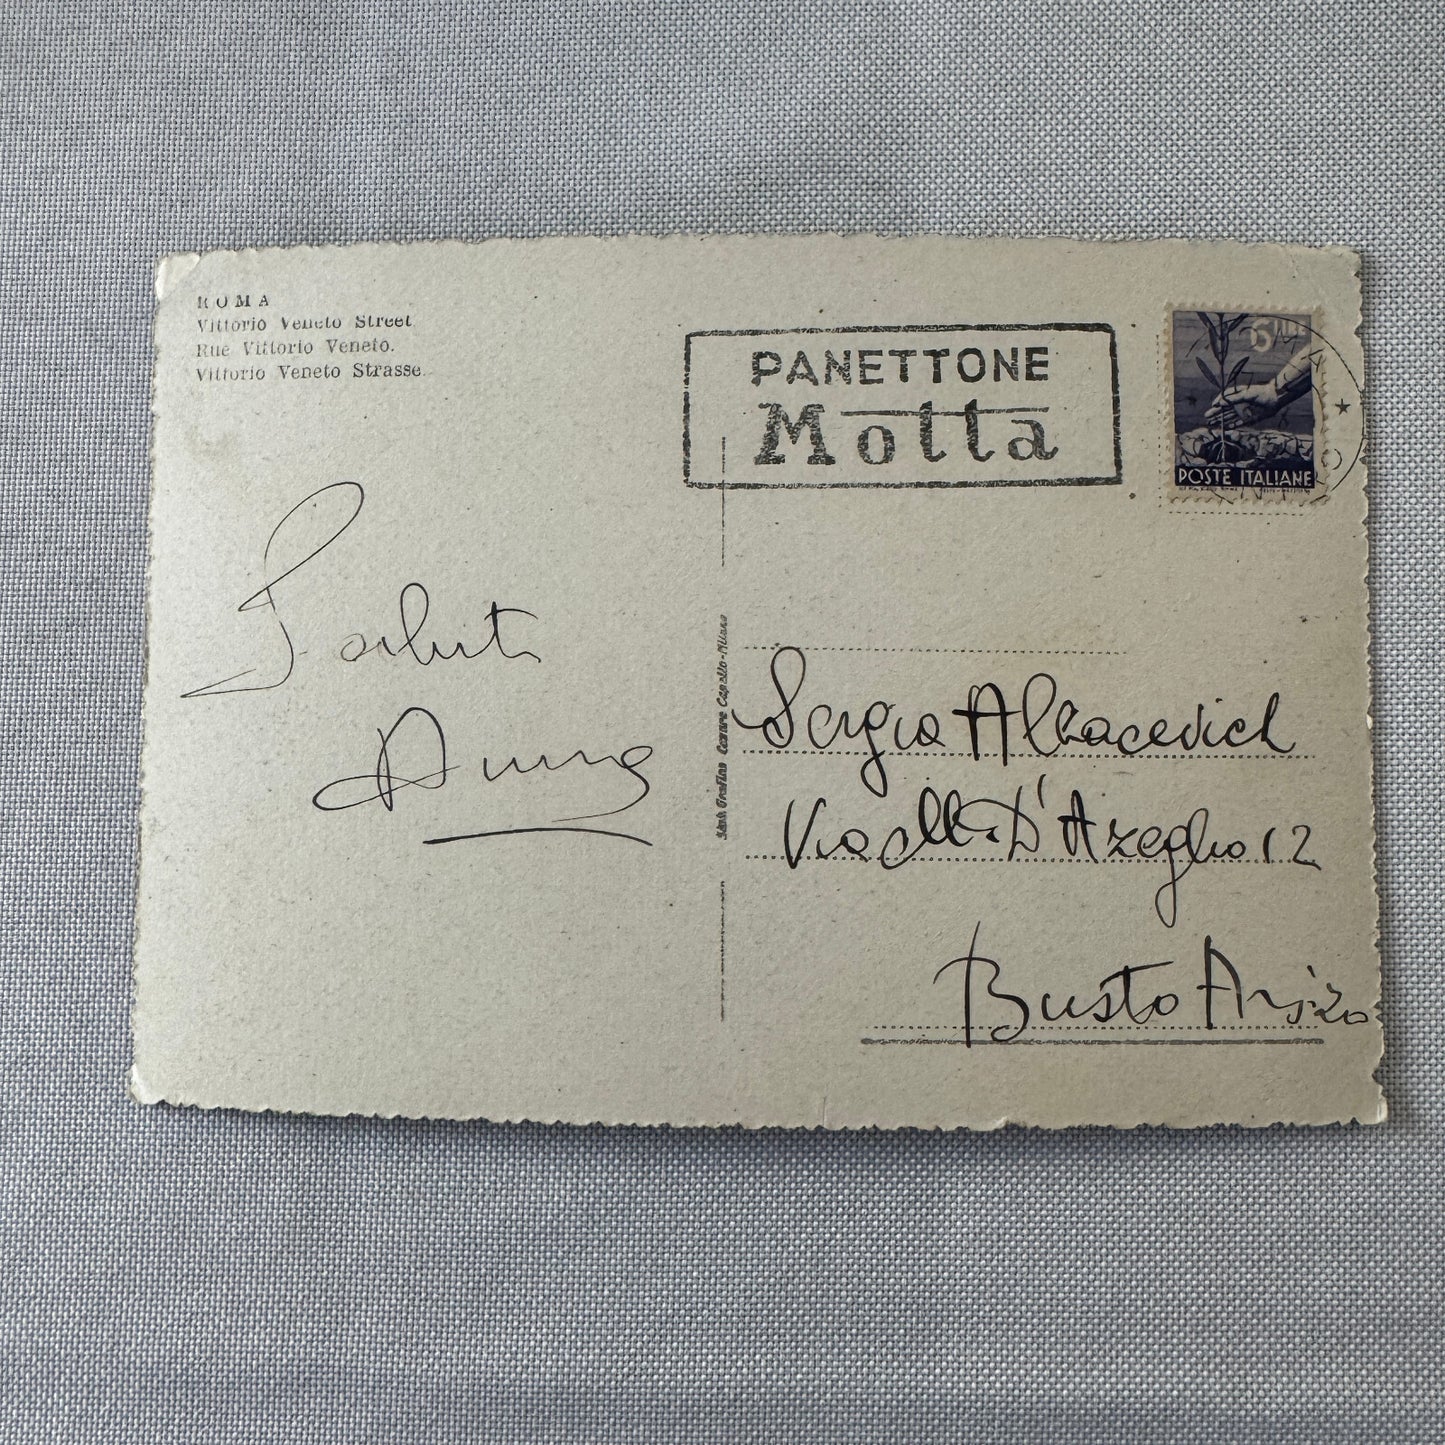 ROMA
Vittorio Veneto Street
Rue Vittorio Veneto.
Vittorio Veneto Strasse
PANETTONE
Motta
6 LIRE
POSTE ITALIANE
Saluti
Anna
Stab. Grafico Cesare Capello - Milano
Sergio
Via M. D'Azeglio 12
Busto Arsizo